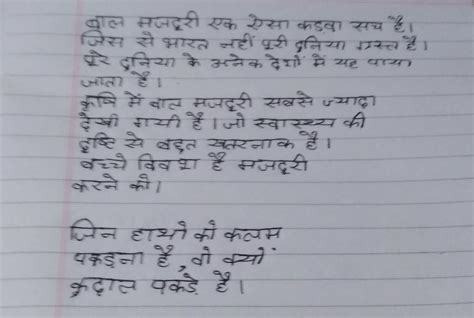 बाल मजदूरी एक ऐसा कडवा सच है।
जिस से भारत नहीं पूरी दुनिया ग्रस्त है।
पूरे दुनिया के अनेक देशों में यह पाया
जाता है।
कृषि में बाल मजदूरी सबसे ज्यादा
देखी गयी है। जो स्वास्थ्य की
दृष्टि से बहुत खतरनाक है।
बच्चे विवश है मजदूरी
करने को।
जिन हाथो को कलम
पकड़ना है, वो क्यों
कुदाल पकडे है।